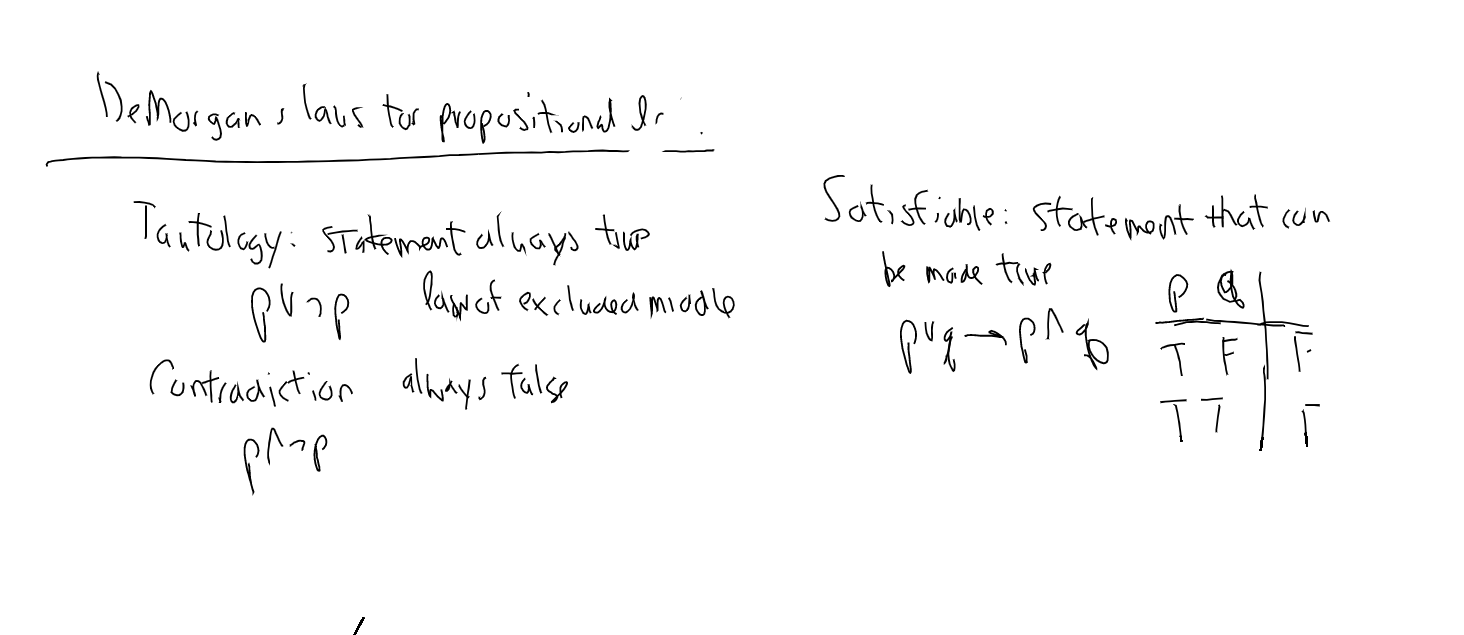 DeMorgan's laws for propositional
Tautology: statement always true
p∨¬p law of excluded middle
Contradiction always false
p∧¬p
Satisfiable: statement that can
be made true
p∨q → p∧q
p q
T F F
T T T